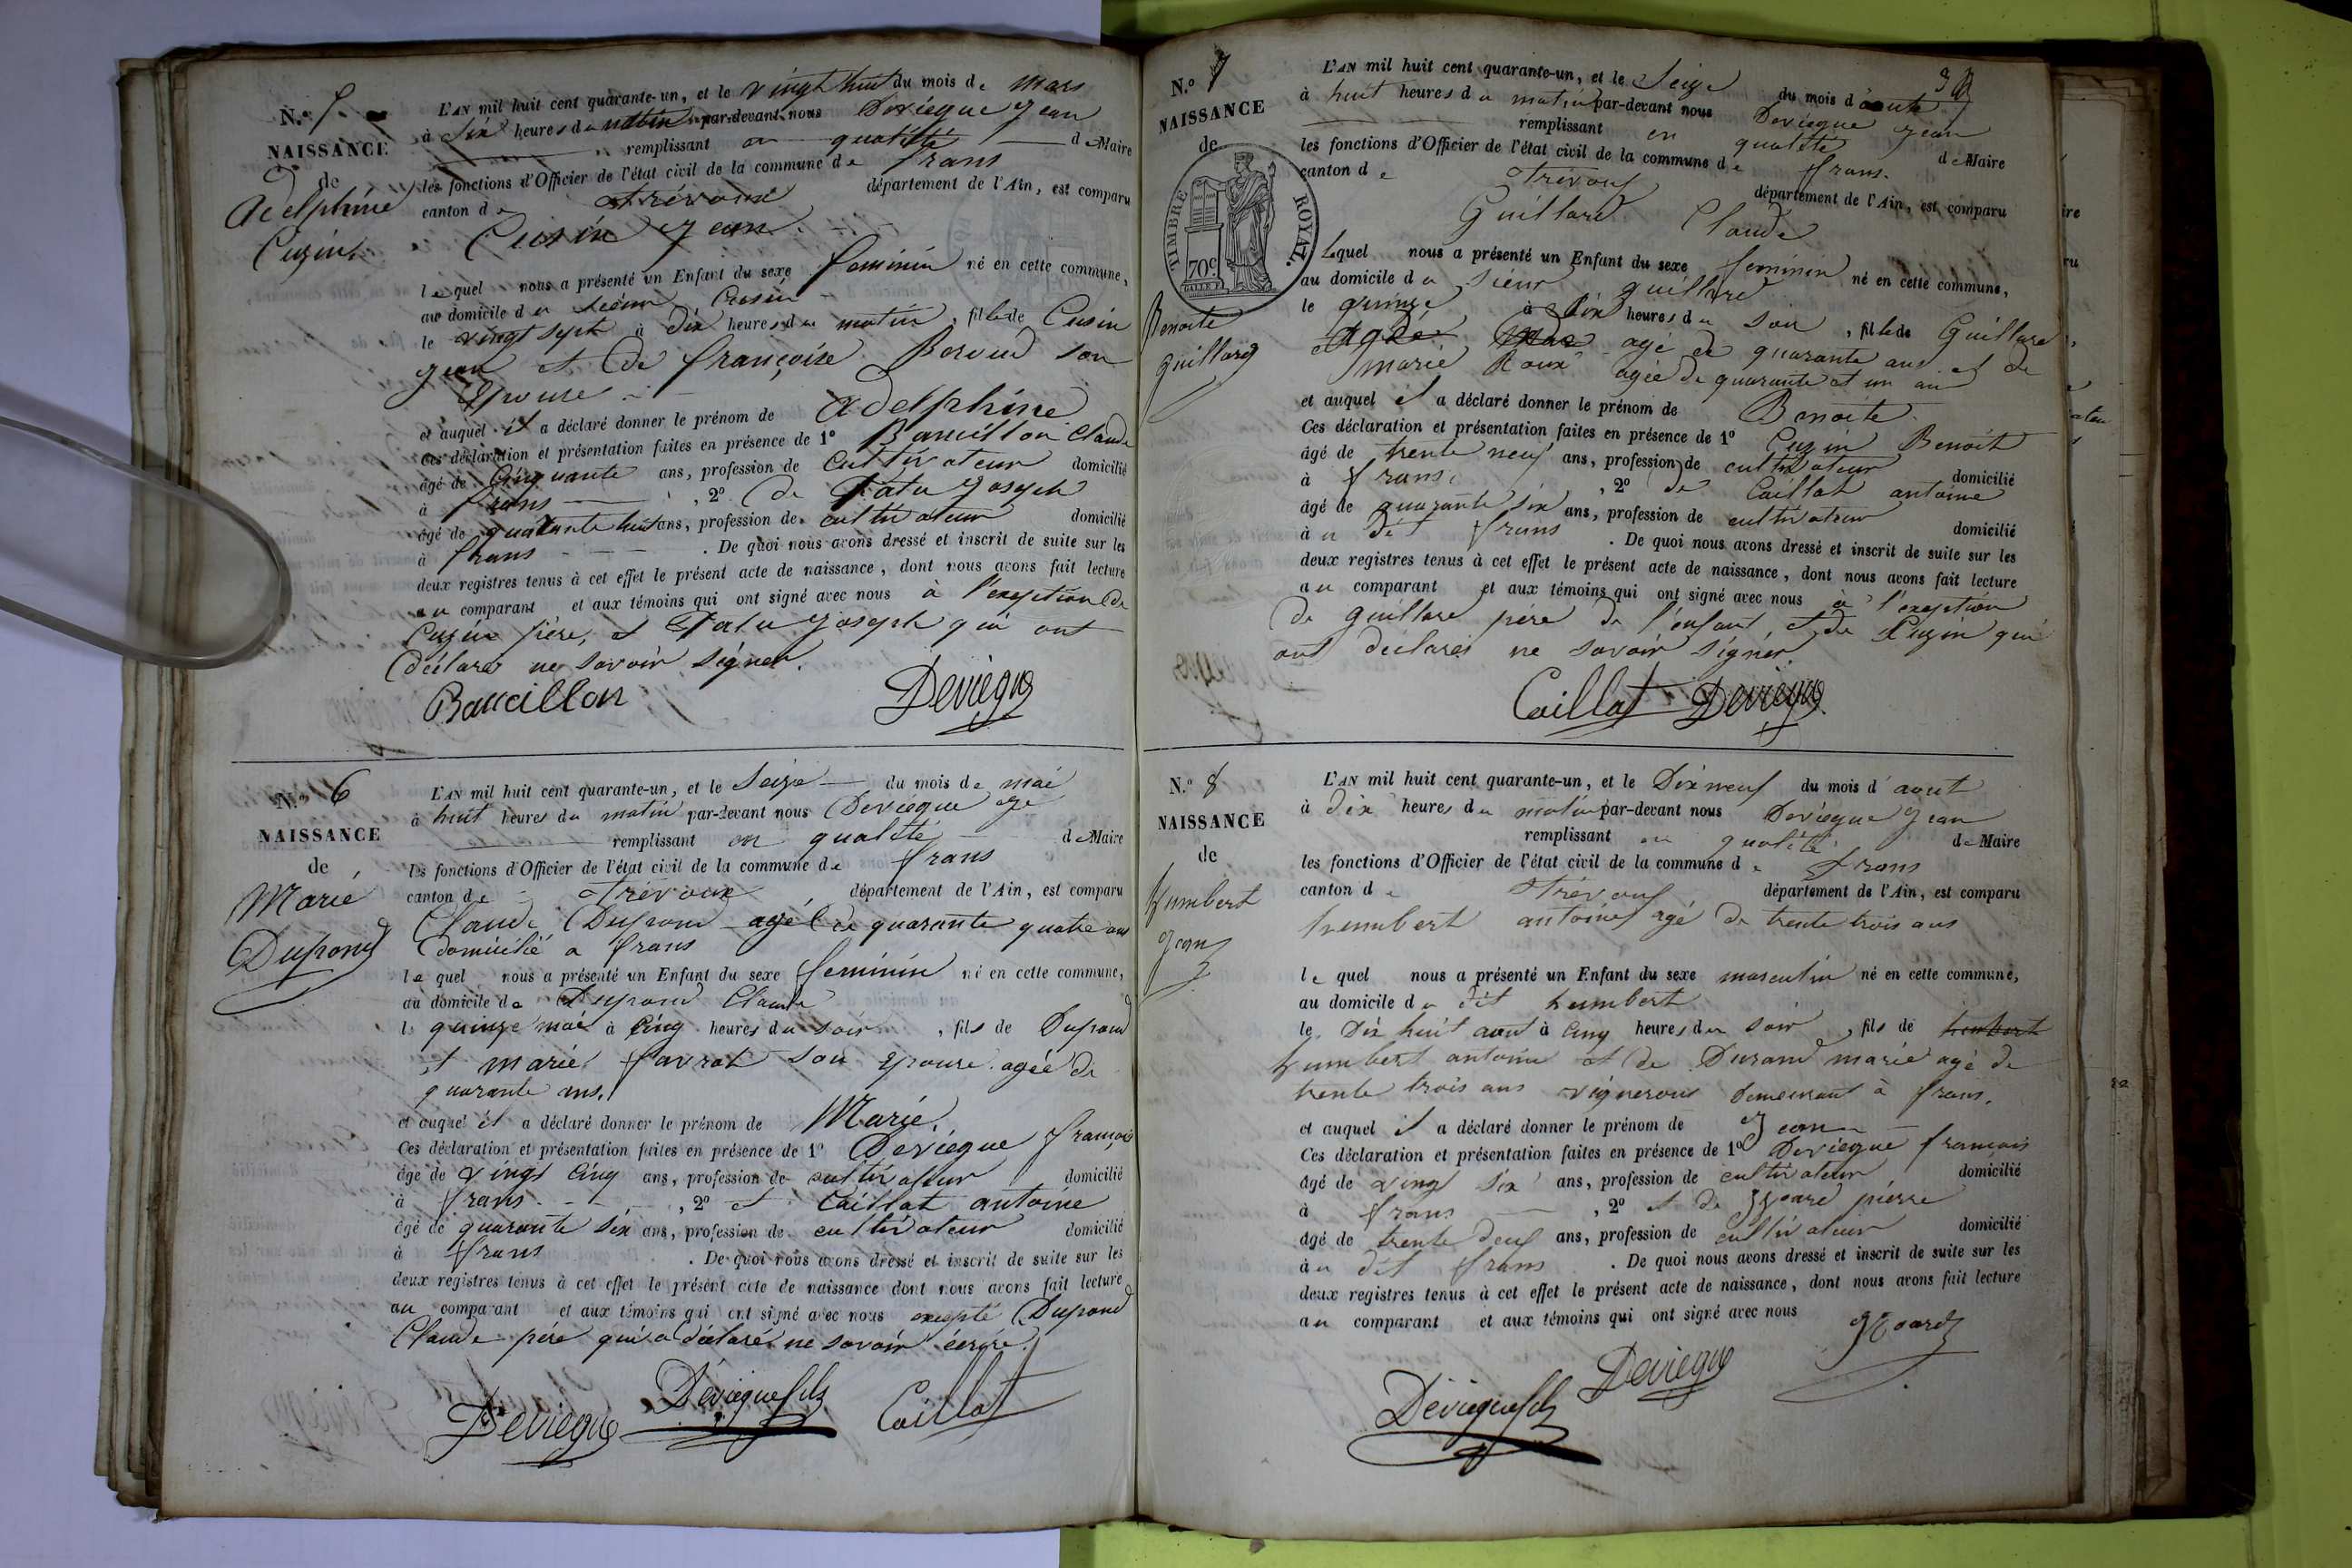 N.º 5
NAISSANCE
de
Adelphine
Cuzin
L'AN mil huit cent quarante-un, et le vingt huit du mois de mars
à six heures du matin par-devant nous Deviegue Jean
remplissant en qualité de Maire
les fonctions d'Officier de l'état civil de la commune de frans
canton de Trévoux département de l'Ain, est comparu
Cusin Jean
lequel nous a présenté un Enfant du sexe feminin né en cette commune,
au domicile du Cusin
le vingt sept à dix heures du matin, fille de Cusin
Jean et de françoise son
Epouse
et auquel il a déclaré donner le prénom de Adelphine
Ces déclaration et présentation faites en présence de 1º Baucillon Claude
âgé de Cinquante ans, profession de cultivateur domicilié
à frans, 2º de Tatu Joseph
âgé de quarante huit ans, profession de cultivateur domicilié
à frans. De quoi nous avons dressé et inscrit de suite sur les
deux registres tenus à cet effet le présent acte de naissance, dont nous avons fait lecture
au comparant et aux témoins qui ont signé avec nous à l'exeption de
Cuzin père, et Tatu Joseph qui ont
déclaré ne savoir signer.
Baucillon Deviegue
N.º 6
NAISSANCE
de
Marie
Dupond
L'AN mil huit cent quarante-un, et le Seize du mois de mai
à huit heures du matin par-devant nous Deviegue
remplissant en qualité de Maire
les fonctions d'Officier de l'état civil de la commune de frans
canton de Trévoux département de l'Ain, est comparu
Claude Dupond agé de quarante quatre ans
domicilié a frans
le quel nous a présenté un Enfant du sexe feminin né en cette commune,
au domicile de Dupond Claude
le quinze mai à Cinq heures du soir, fils de Dupond
et marie favrot son Epouse agée de
quarante ans.
et auquel il a déclaré donner le prénom de Marie.
Ces déclaration et présentation faites en présence de 1º Deviegue françois
âgé de vingt Cinq ans, profession de cultivateur domicilié
à frans, 2º et Caillat antoine
âgé de quarante six ans, profession de cultivateur domicilié
à frans. De quoi nous avons dressé et inscrit de suite sur les
deux registres tenus à cet effet le présent acte de naissance dont nous avons fait lecture
au comparant et aux témoins qui ont signé avec nous excepté Dupond
Claude père qui a déclaré ne savoir écrire.
Deviegue Deviegue fils Caillat
N.º 7
NAISSANCE
de
TIMBRE ROYAL.
70c
Benoite
guillard
L'AN mil huit cent quarante-un, et le Seize du mois d'aoute
à huit heures du matin par-devant nous Deviegue Jean
remplissant en qualité de Maire
les fonctions d'Officier de l'état civil de la commune de frans.
canton de Trévoux département de l'Ain, est comparu
Guillard Claude
Lequel nous a présenté un Enfant du sexe feminin né en cette commune,
au domicile du sieur guillard
le quinze à dix heures du soir, fille de Guillard
agé de quarante ans et de
marie Roux agée de quarante et un an
et auquel il a déclaré donner le prénom de Benoite.
Ces déclaration et présentation faites en présence de 1º Cuzin Benoit
âgé de trente neuf ans, profession de cultivateur domicilié
à frans, 2º de Caillat antoine
âgé de quarante six ans, profession de cultivateur domicilié
à u dit frans. De quoi nous avons dressé et inscrit de suite sur les
deux registres tenus à cet effet le présent acte de naissance, dont nous avons fait lecture
au comparant et aux témoins qui ont signé avec nous à l'exeption
de guillard père de l'enfant, et de Cuzin qui
ont déclarés ne savoir signer
Caillat Deviegue
N.º 8
NAISSANCE
de
humbert
Jean
L'AN mil huit cent quarante-un, et le Dix neuf du mois d'aout
à dix heures du matin par-devant nous Deviegue Jean
remplissant en qualité de Maire
les fonctions d'Officier de l'état civil de la commune de frans
canton de Trévoux département de l'Ain, est comparu
humbert antoine agé de trente trois ans
le quel nous a présenté un Enfant du sexe masculin né en cette commune,
au domicile du dit humbert
le Dix huit aout à Cinq heures du soir, fils de humbert
humbert antoine et de Durand marie agé de
trente trois ans vignerons demeurant à frans.
et auquel il a déclaré donner le prénom de Jean
Ces déclaration et présentation faites en présence de 1º Deviegue françois
âgé de vingt six ans, profession de cultivateur domicilié
à frans, 2º et de pierre
âgé de trente deux ans, profession de cultivateur domicilié
à u dit frans. De quoi nous avons dressé et inscrit de suite sur les
deux registres tenus à cet effet le présent acte de naissance, dont nous avons fait lecture
au comparant et aux témoins qui ont signé avec nous
Deviegue fils Deviegue